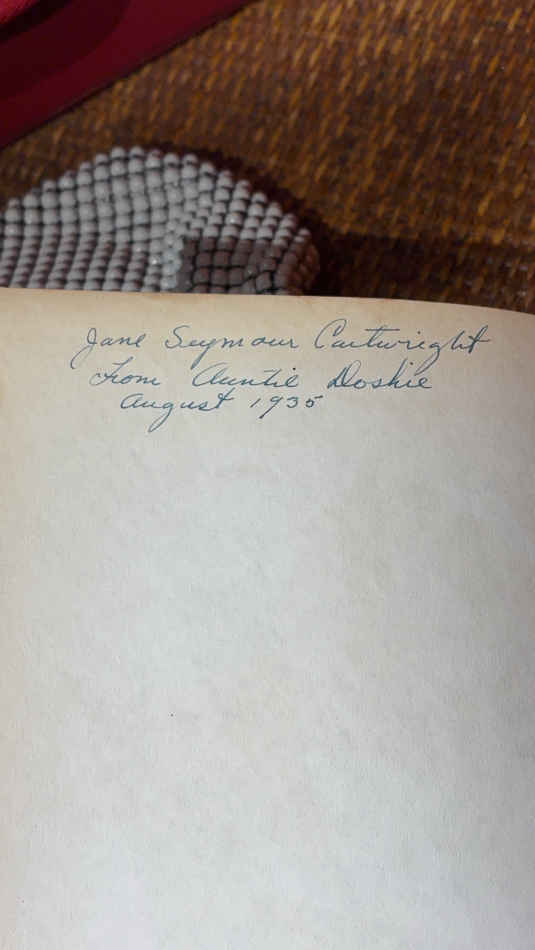 Jane Seymour Cartwright
From Auntie Doshie
August 1935